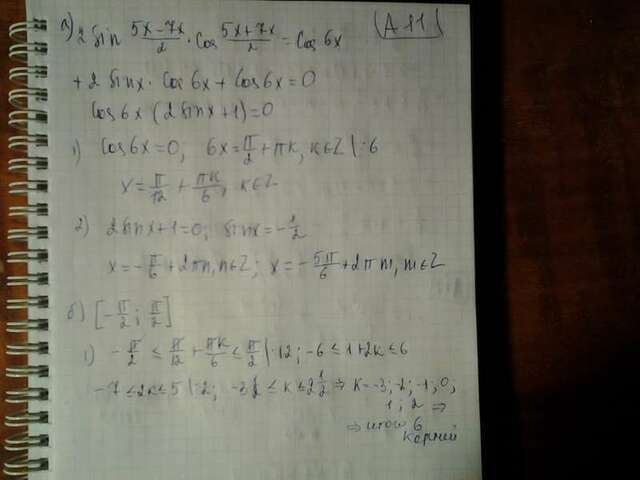 а) 2 sin (5x-7x)/2 · cos (5x+7x)/2 = cos 6x (A 11)
+2 sin x · cos 6x + cos 6x = 0
cos 6x (2 sin x + 1) = 0
1) cos 6x = 0; 6x = π/2 + πk, k∈Z | :6
x = π/12 + πk/6, k∈Z
2) 2 sin x + 1 = 0; sin x = -1/2
x = -π/6 + 2πn, n∈Z; x = -5π/6 + 2πm, m∈Z
б) [-π/2; π/2]
1) -π/2 ≤ π/12 + πk/6 ≤ π/2 | ·12; -6 ≤ 1+2k ≤ 6
-7 ≤ 2k ≤ 5 | :2; -3 1/2 ≤ k ≤ 2 1/2 ⇒ k = -3; -2; -1; 0;
1; 2 ⇒
⇒ итого 6
корней